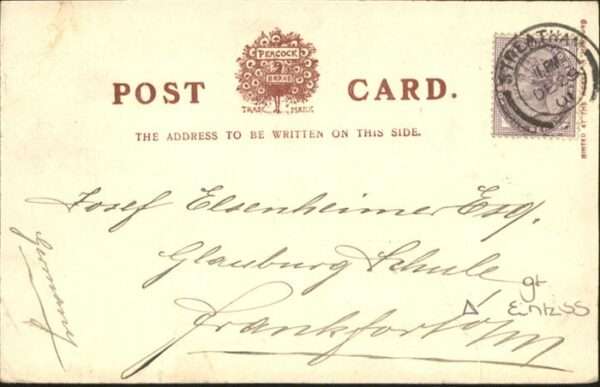 PEACOCK
BRAND
TRADE MARK
POST CARD.
THE ADDRESS TO BE WRITTEN ON THIS SIDE.
STREATHAM
Josef Elsenheimer Esq.
Glauburg Schule
Frankfort o/m
Germany
gt